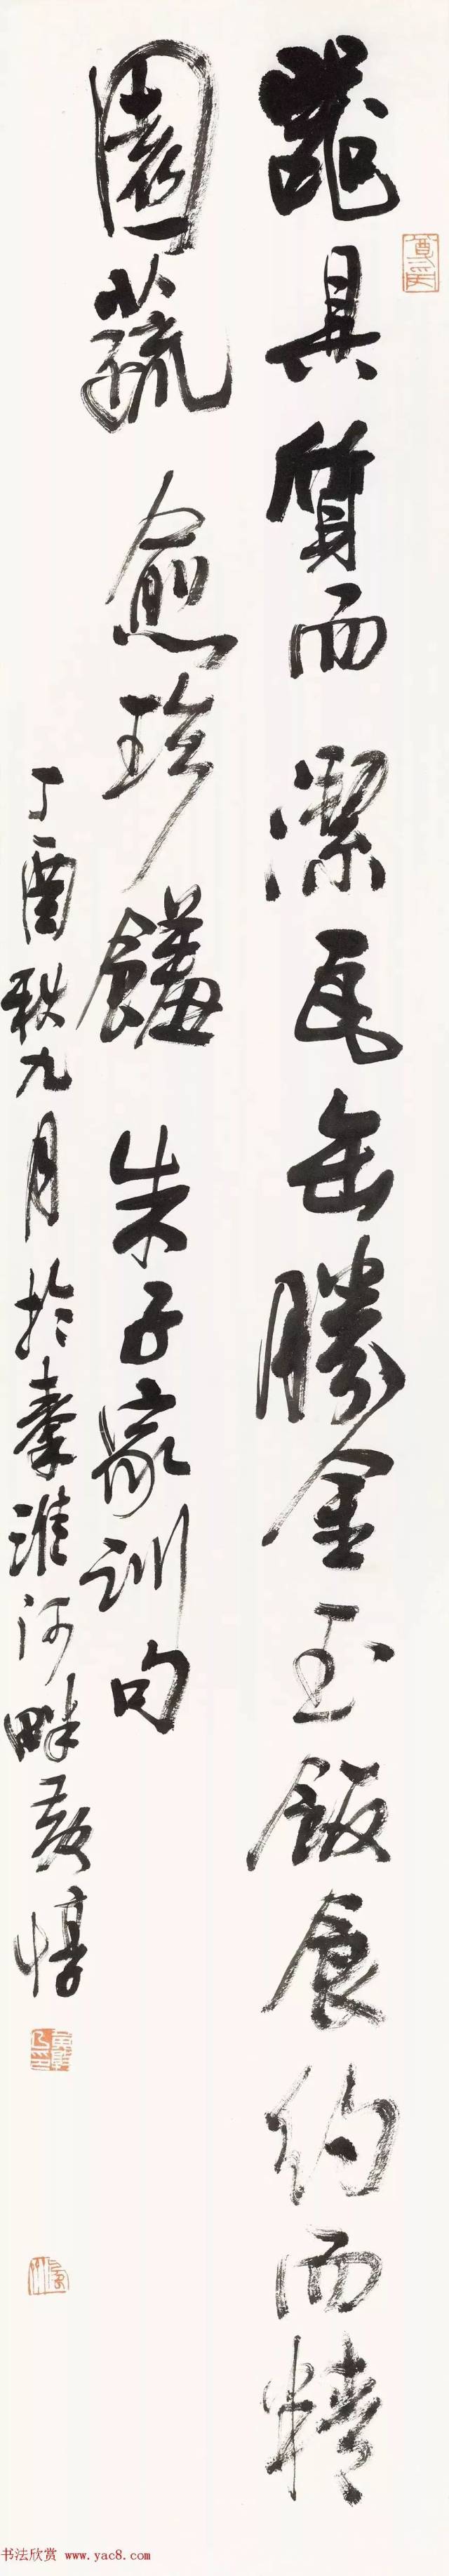 器具質而潔瓦缶勝金玉飯食約而精
園蔬愈珍饈 朱子家訓句
丁酉秋九月於秦淮河畔黄惇
书法欣赏 www.yac8.com